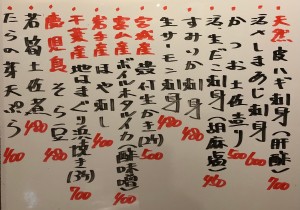 天然 皮ハギ刺身(肝酢) 700
活〆しまあじ刺身 600
かつお土佐造り 500
活生だこ刺身(胡麻塩) 480
すみいか刺身 480
生サーモン刺身 480
宮城産 殻付生かき(2ヶ) 500
富山産 ボイルホタルイカ(酢味噌) 400
岩手産 はや刺し 400
千葉産 地はまぐり浜焼き(3ケ) 700
鹿児島 そら豆 480
若筍土佐煮 480
たらの芽天ぷら 400